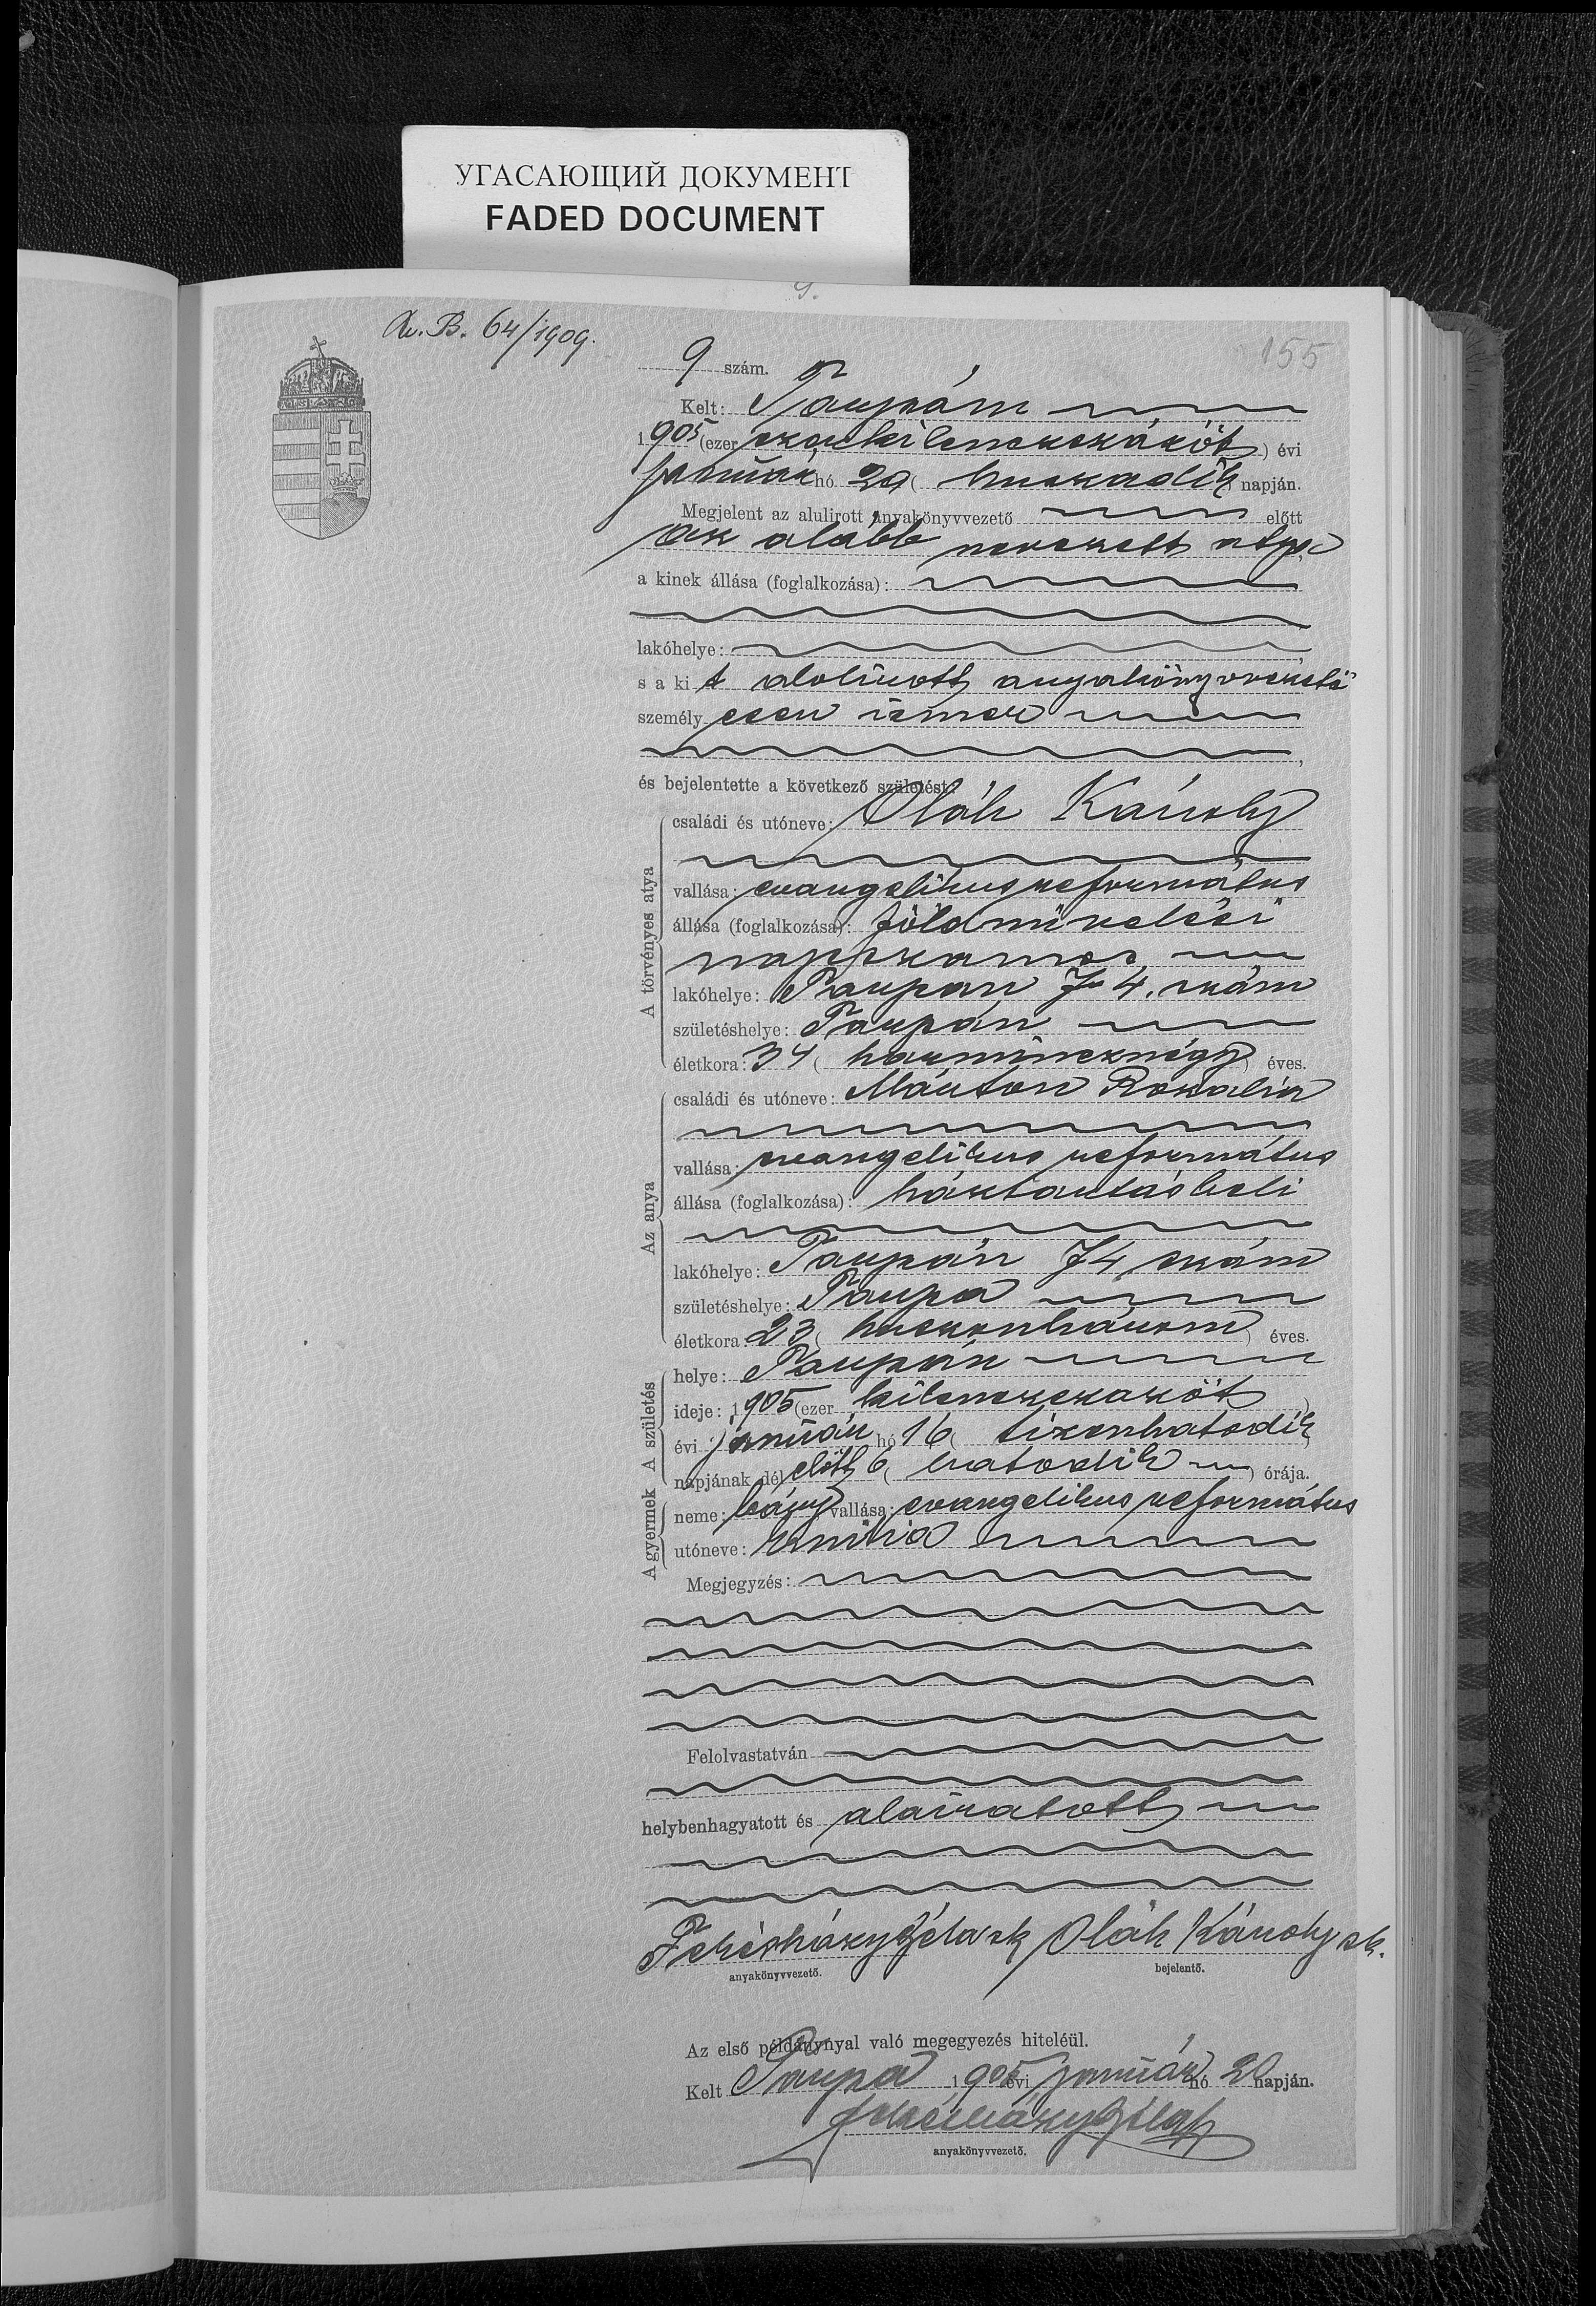 УГАСАЮЩИЙ ДОКУМЕНТ
FADED DOCUMENT
B. 64/1909.
155
9 szám.
Kelt: Tarpán
1905 (ezer ezerkilenczszázöt) évi
január hó 20 ( huszadik napján.
Megjelent az alulirott anyakönyvvezető előtt
az alább nevezett atya
a kinek állása (foglalkozása):
lakóhelye:
s a ki t alolirott anyakönyvvezető
személy esen ismer
és bejelentette a következő születést:
A törvényes atya
családi és utóneve: Oláh Károly
vallása: evangelikus református
állása (foglalkozása): földmivelési
napszamos
lakóhelye: Tarpan 74. szám
születéshelye: Tarpán
életkora: 34 ( harmincznégy) éves.
Az anya
családi és utóneve: Márton Rozalia
vallása: evangelikus református
állása (foglalkozása): háztartásbeli
lakóhelye: Tarpán 74 szám
születéshelye: Tarpa
életkora: 23 ( huszonhárom) éves.
A születés
helye: Tarpán
ideje: 1905 (ezer kilenczszázöt )
évi január hó 16 ( tizenhatodik
napjának dél előtt 6 ( hatodik ) órája.
A gyermek
neme: leány vallása: evangelikus református
utóneve:
Megjegyzés:
Felolvastatván
helybenhagyatott és aláiratott
Fehérházy Béla sk Oláh Károly sk.
anyakönyvvezető. bejelentő.
Az első példánynyal való megegyezés hiteléül.
Kelt Tarpa 1905 évi január hó 20 napján.
Fehérházy Béla
anyakönyvvezető.